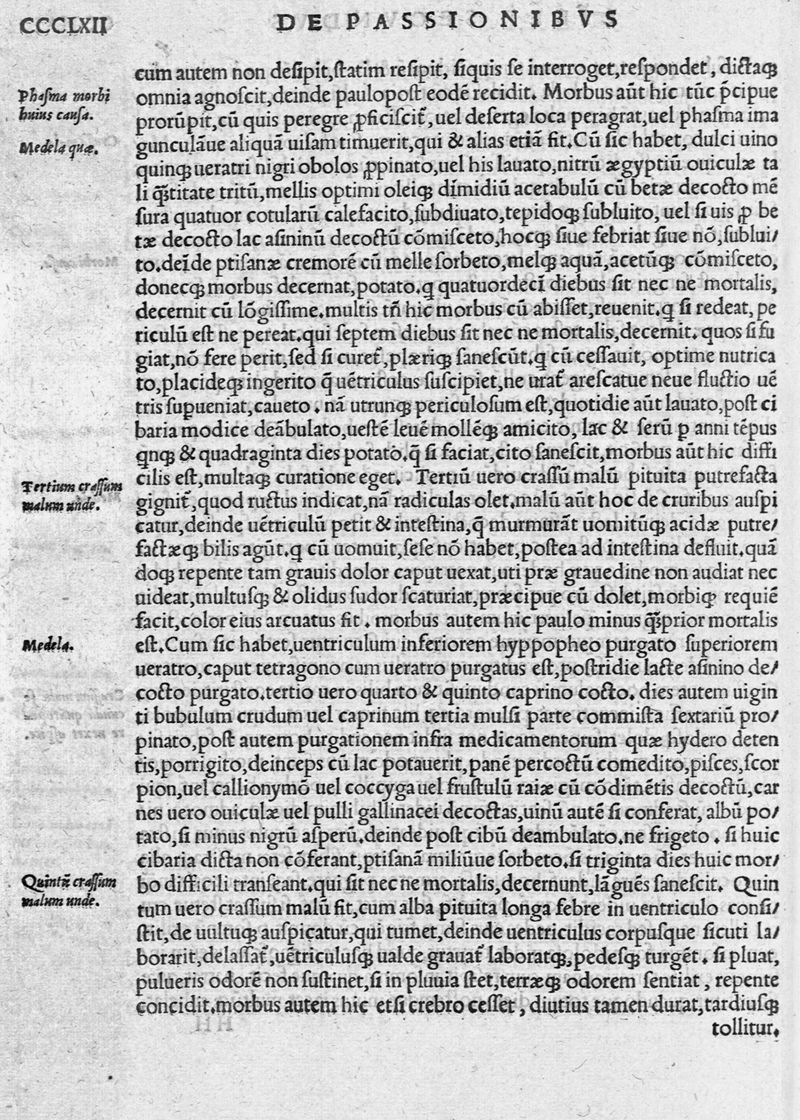 CCCLXII
DE PASSIONIBVS
cum autem non desipit,statim resipit, siquis se interroget,respondet, dictaqꝫ
Phasma morbi
huius causa.
omnia agnoscit,deinde paulopost eodē recidit. Morbus aūt hic tūc p̄cipue
prorūpit,cū quis peregre ꝓficiscit᷑,uel deserta loca peragrat,uel phasma ima
Medela quæ.
gunculāue aliquā uisam timuerit,qui & alias etiā fit.Cū sic habet, dulci uino
quinqꝫ ueratri nigri obolos ꝓpinato,uel his lauato,nitrū ægyptiū ouiculæ ta
li q̄titate tritū,mellis optimi oleiqꝫ dimidiū acetabulū cū betæ decocto mē
sura quatuor cotularū calefacito,subdiuato,tepidoqꝫ subluito, uel si uis ꝓ be
tæ decocto lac asininū decoctū cōmisceto,hocqꝫ siue febriat siue nō,sublui/
to.deīde ptisanæ cremorē cū melle sorbeto,melqꝫ aquā,acetūqꝫ cōmisceto,
donecqꝫ morbus decernat,potato.q quatuordecī diebus sit nec ne mortalis,
decernit cū lōgissime.multis tn̄ hic morbus cū abisset,reuenit.q si redeat, pe
riculū est ne pereat.qui septem diebus sit nec ne mortalis,decernit. quos si fu
giat,nō fere perit,sed si curet᷑,plæriqꝫ sanescūt.q cū cessauit, optime nutrica
to,placideqꝫ ingerito q̄ uētriculus suscipiet,ne urat᷑ arescatue neue fluctio uē
tris supueniat,caueto. nā utrunqꝫ periculosum est,quotidie aūt lauato,post ci
baria modice deābulato,uestē leuē mollēqꝫ amicito, lac & serū p anni tēpus
qnqꝫ & quadraginta dies potato.q̄ si faciat,cito sanescit,morbus aūt hic diffi
Tertium crassum
malum unde.
cilis est,multaqꝫ curatione eget. Tertiū uero crassū malū pituita putrefacta
gignit᷑,quod ructus indicat,nā radiculas olet.malū aūt hoc de cruribus auspi
catur,deinde uētriculū petit & intestina,q̄ murmurāt uomitūqꝫ acidæ putre/
factæqꝫ bilis agūt.q cū uomuit,sese nō habet,postea ad intestina defluit.quā
doqꝫ repente tam grauis dolor caput uexat,uti præ grauedine non audiat nec
uideat,multusqꝫ & olidus sudor scaturiat,præcipue cū dolet,morbiqꝫ requiē
facit,color eius arcuatus fit. morbus autem hic paulo minus q̄ꝫprior mortalis
Medela.
est.Cum sic habet,uentriculum inferiorem hyppopheo purgato superiorem
ueratro,caput tetragono cum ueratro purgatus est,postridie lacte asinino de/
cocto purgato.tertio uero quarto & quinto caprino cocto. dies autem uigin
ti bubulum crudum uel caprinum tertia mulsi parte commista sextariū pro/
pinato,post autem purgationem infra medicamentorum quæ hydero deten
tis,porrigito,deinceps cū lac potauerit,panē percoctū comedito,pisces,scor
pion,uel callionymō uel coccyga uel frustulū raiæ cū cōdimētis decoctū,car
nes uero ouiculæ uel pulli gallinacei decoctas,uinū autē si conferat, albū po/
tato,si minus nigrū asperū.deinde post cibū deambulato.ne frigeto. si huic
cibaria dicta non cōferant,ptisanā miliūue sorbeto.si triginta dies huic mor/
Quintū crassum
malum unde.
bo difficili transeant.qui sit nec ne mortalis,decernunt,lāguēs sanescit. Quin
tum uero crassum malū fit,cum alba pituita longa febre in uentriculo consi/
stit,de uultuqꝫ auspicatur,qui tumet,deinde uentriculus corpusque sicuti la/
borarit,delassat᷑,uētriculusqꝫ ualde grauat᷑ laboratqꝫ,pedesqꝫ turgēt. si pluat,
pulueris odorē non sustinet,si in pluuia stet,terræqꝫ odorem sentiat, repente
concidit.morbus autem hic etsi crebro cesset, diutius tamen durat,tardiusqꝫ
tollitur.